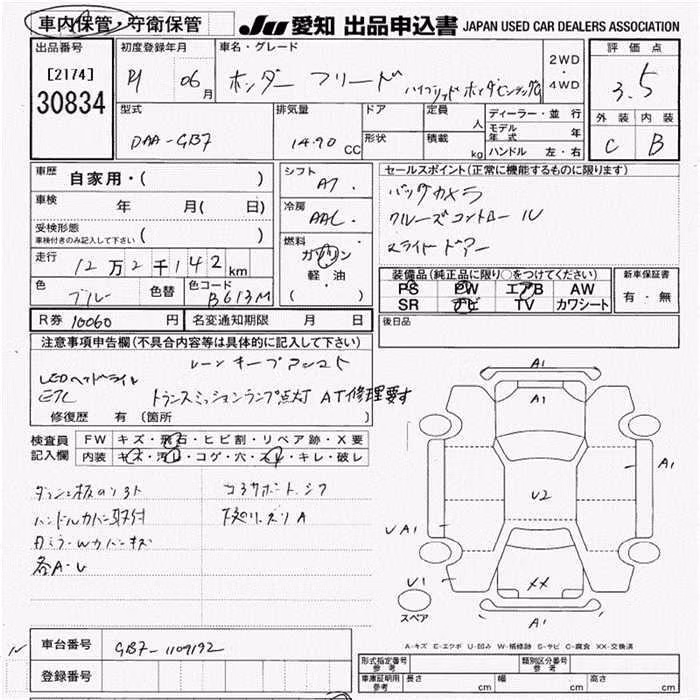 車内保管・守衛保管
JU 愛知 出品申込書 JAPAN USED CAR DEALERS ASSOCIATION
出品番号
[2174]
30834
初度登録年月
H 06月
車名・グレード
ホンダー フリード
2WD
・
4WD
評価点
3.5
外装 内装
C B
型式
DAA-GB7
排気量
1490 CC
ドア
形状
定員 人
積載 kg
ディーラー・並行
モデル年式 年
ハンドル 左・右
車歴 自家用・( )
車検 年 月( 日)
受検形態
車検付きのみ記入して下さい ( )
走行 12万2千142km
色 ブルー 色替 色コード B613M
シフト
AT .
冷房
AAC .
燃料
ガソリン
軽・油
( ・ )
セールスポイント(正常に機能するものに限ります)
バックカメラ
クルーズコントロール
スライドドアー
装備品(純正品に限り○をつけてください)
PS PW エアB AW
SR ナビ TV カワシート
新車保証書
有・無
R券 10060 円 名変通知期限 月 日
後日品
注意事項申告欄(不具合内容等は具体的に記入して下さい)
レーンキープアシスト
LEDヘッドライト
ETC トランスミッションランプ点灯 AT修理要す
修復歴 有 (箇所 )
検査員
記入欄
FW キズ・飛石・ヒビ割・リペア跡・X要
内装 キズ・汚レ・コゲ・穴・スレ・キレ・破レ
ハンドルカバー取付
各A-U
A1
A1
A1
U2
UA1
U1
XX
A1
スペア
A-キズ E-エクボ U-凹み W-補修跡 S-サビ C-腐食 XX-交換済
車台番号 GB7-1109192
登録番号
形式指定番号
参考
類別区分番号
参考
車庫証明用
参考
長さ cm 幅 cm 高さ cm